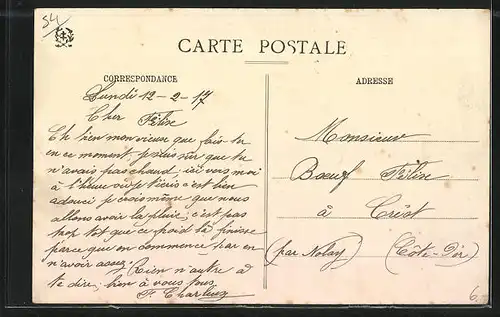 54
CARTE POSTALE
CORRESPONDANCE
ADRESSE
Lundi 12-2-17
Cher Félise
Eh bien mon vieux que fais-tu
en ce moment, je suis sûr que tu
n'avais pas chaud, ici vers moi
à l'heure est bien
adouci je crois même que nous
allons avoir la pluie, c'est pas
trop tot que ce froid là finisse
parce que on commence par en
n'avoir assez. Rien n'autre à
te dire, bien à vous tous
F. Charleux
Monsieur
Bœuf Félise
à Crést
(par Nolay) (Côte-d'Or)
6